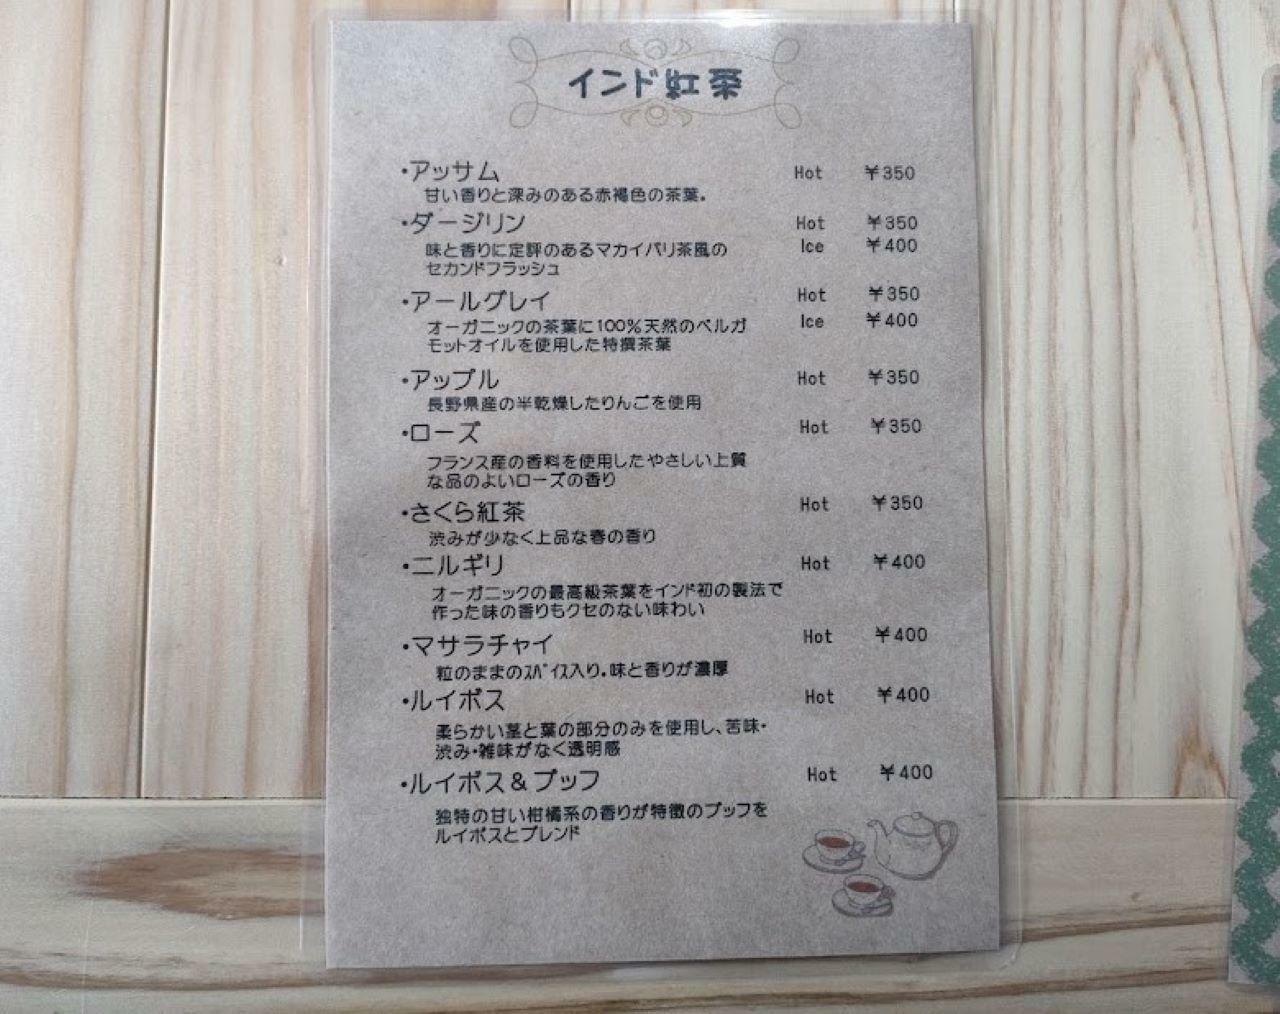 インド紅茶
・アッサム Hot ￥350
甘い香りと深みのある赤褐色の茶葉。
・ダージリン Hot ￥350
味と香りに定評のあるマカイバリ茶風の Ice ￥400
セカンドフラッシュ
・アールグレイ Hot ￥350
オーガニックの茶葉に100％天然のベルガ Ice ￥400
モットオイルを使用した特撰茶葉
・アップル Hot ￥350
長野県産の半乾燥したりんごを使用
・ローズ Hot ￥350
フランス産の香料を使用したやさしい上質
な品のよいローズの香り
・さくら紅茶 Hot ￥350
渋みが少なく上品な春の香り
・ニルギリ Hot ￥400
オーガニックの最高級茶葉をインド初の製法で
作った味の香りもクセのない味わい
・マサラチャイ Hot ￥400
粒のままのｽﾊﾟｲｽ入り。味と香りが濃厚
・ルイボス Hot ￥400
柔らかい茎と葉の部分のみを使用し、苦味・
渋み・雑味がなく透明感
・ルイボス＆ブッフ Hot ￥400
独特の甘い柑橘系の香りが特徴のブッフを
ルイボスとブレンド